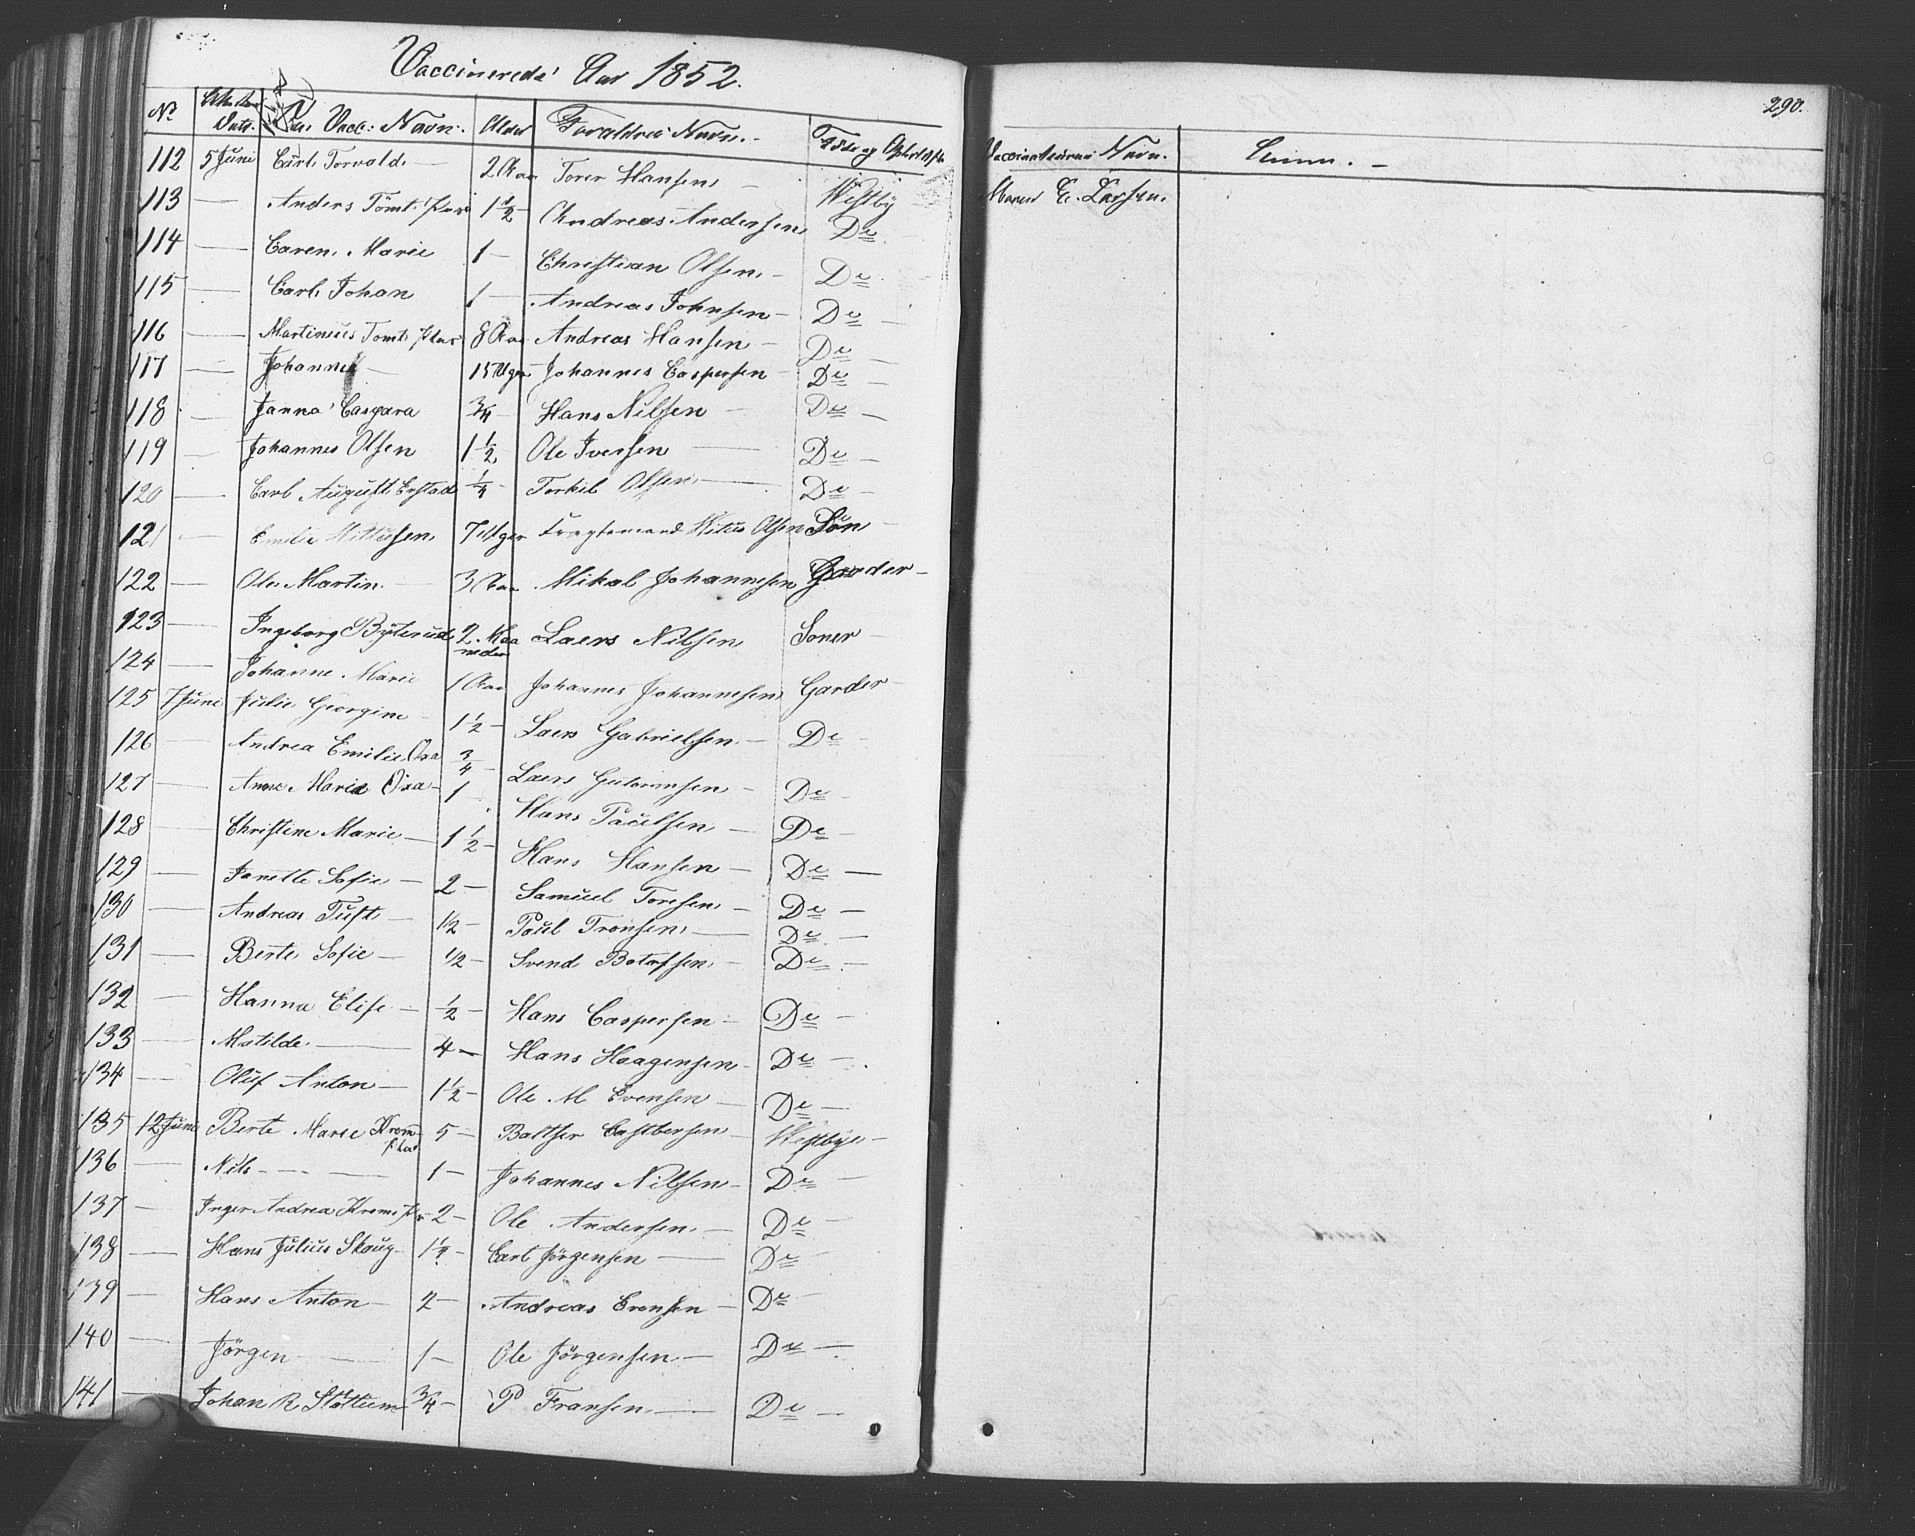 Vaccinerede Aar 1852.
290.
No Datt. Vacc: Navn. Alder Forældres Navn. Føde og
Navn.
112 5 Juni Carl Torvald 2 Aar Torer Hansen Westby Maren E. Larsen.
113 — Anders Tømt. 1 1/2 Andreas Andersen De
114 — Caren Marie 1 — Christian Olsen — De
115 — Carl Johan 1 — Andreas Johnsen — De
116 — Martinius Tomt. 8 Aar Andreas Hansen — De
117 — Johannes — 15 Uger Johannes Caspersen De —
118 — Janna Casgara 3/4 — Hans Nilsen — De —
119 — Johannes Olsen 1 1/2 Ole Iversen — De —
120 — Carl August 1/4 — Torkil Olsen — De —
121 — Emilie Mittusen 7 Uger Fragtemand Mitus Olsen Søn
122 — Ole Martin 3 Aar Mikal Johannesen Garder —
123 — Ingeborg Byterud 2 Maa Laers Nilsen Soner —
neder
124 — Johanne Marie 1 Aar Johannes Johannesen Garder —
125 7 Juni Julie Georgine — 1 1/2 — Laers Gabrielsen — De —
126 — Andrea Emilie Oxa 3/4 — Laers Gutormsen — De —
127 — Anne Maria Oxa — 1 Hans Paulsen — De —
128 — Christine Marie — 1 1/2 — Hans Hansen — De —
129 — Janette Sofie — 2 — Samuel Toresen — De —
130 — Andreas Tuft — 1/2 — Poul Tronsen — De —
131 — Berte Sofie — 1/2 — Svend Botolfsen — De —
132 — Hanna Elise — 1/2 — Hans Caspersen — De —
133 — Matilde — 4 — Hans Haagensen — De —
134 — Oluf Anton — 1 1/2 — Ole M Evensen — De —
135 12 Juni Berte Marie Krom 5 — Baltser Castbersen — Westbye —
136 — Nils — 1 — Johannes Nilsen — De —
137 — Inger Andrea Krom 2 — Ole Andersen — De —
138 — Hans Julius Skaug — 1 1/4 — Carl Jörgensen — De
139 — Hans Anton — 2 — Andreas Evensen — De
140 — Jörgen — 1 — Ole Jörgensen — De —
141 — Johan R Støttum 3/4 — P Fransen — De —